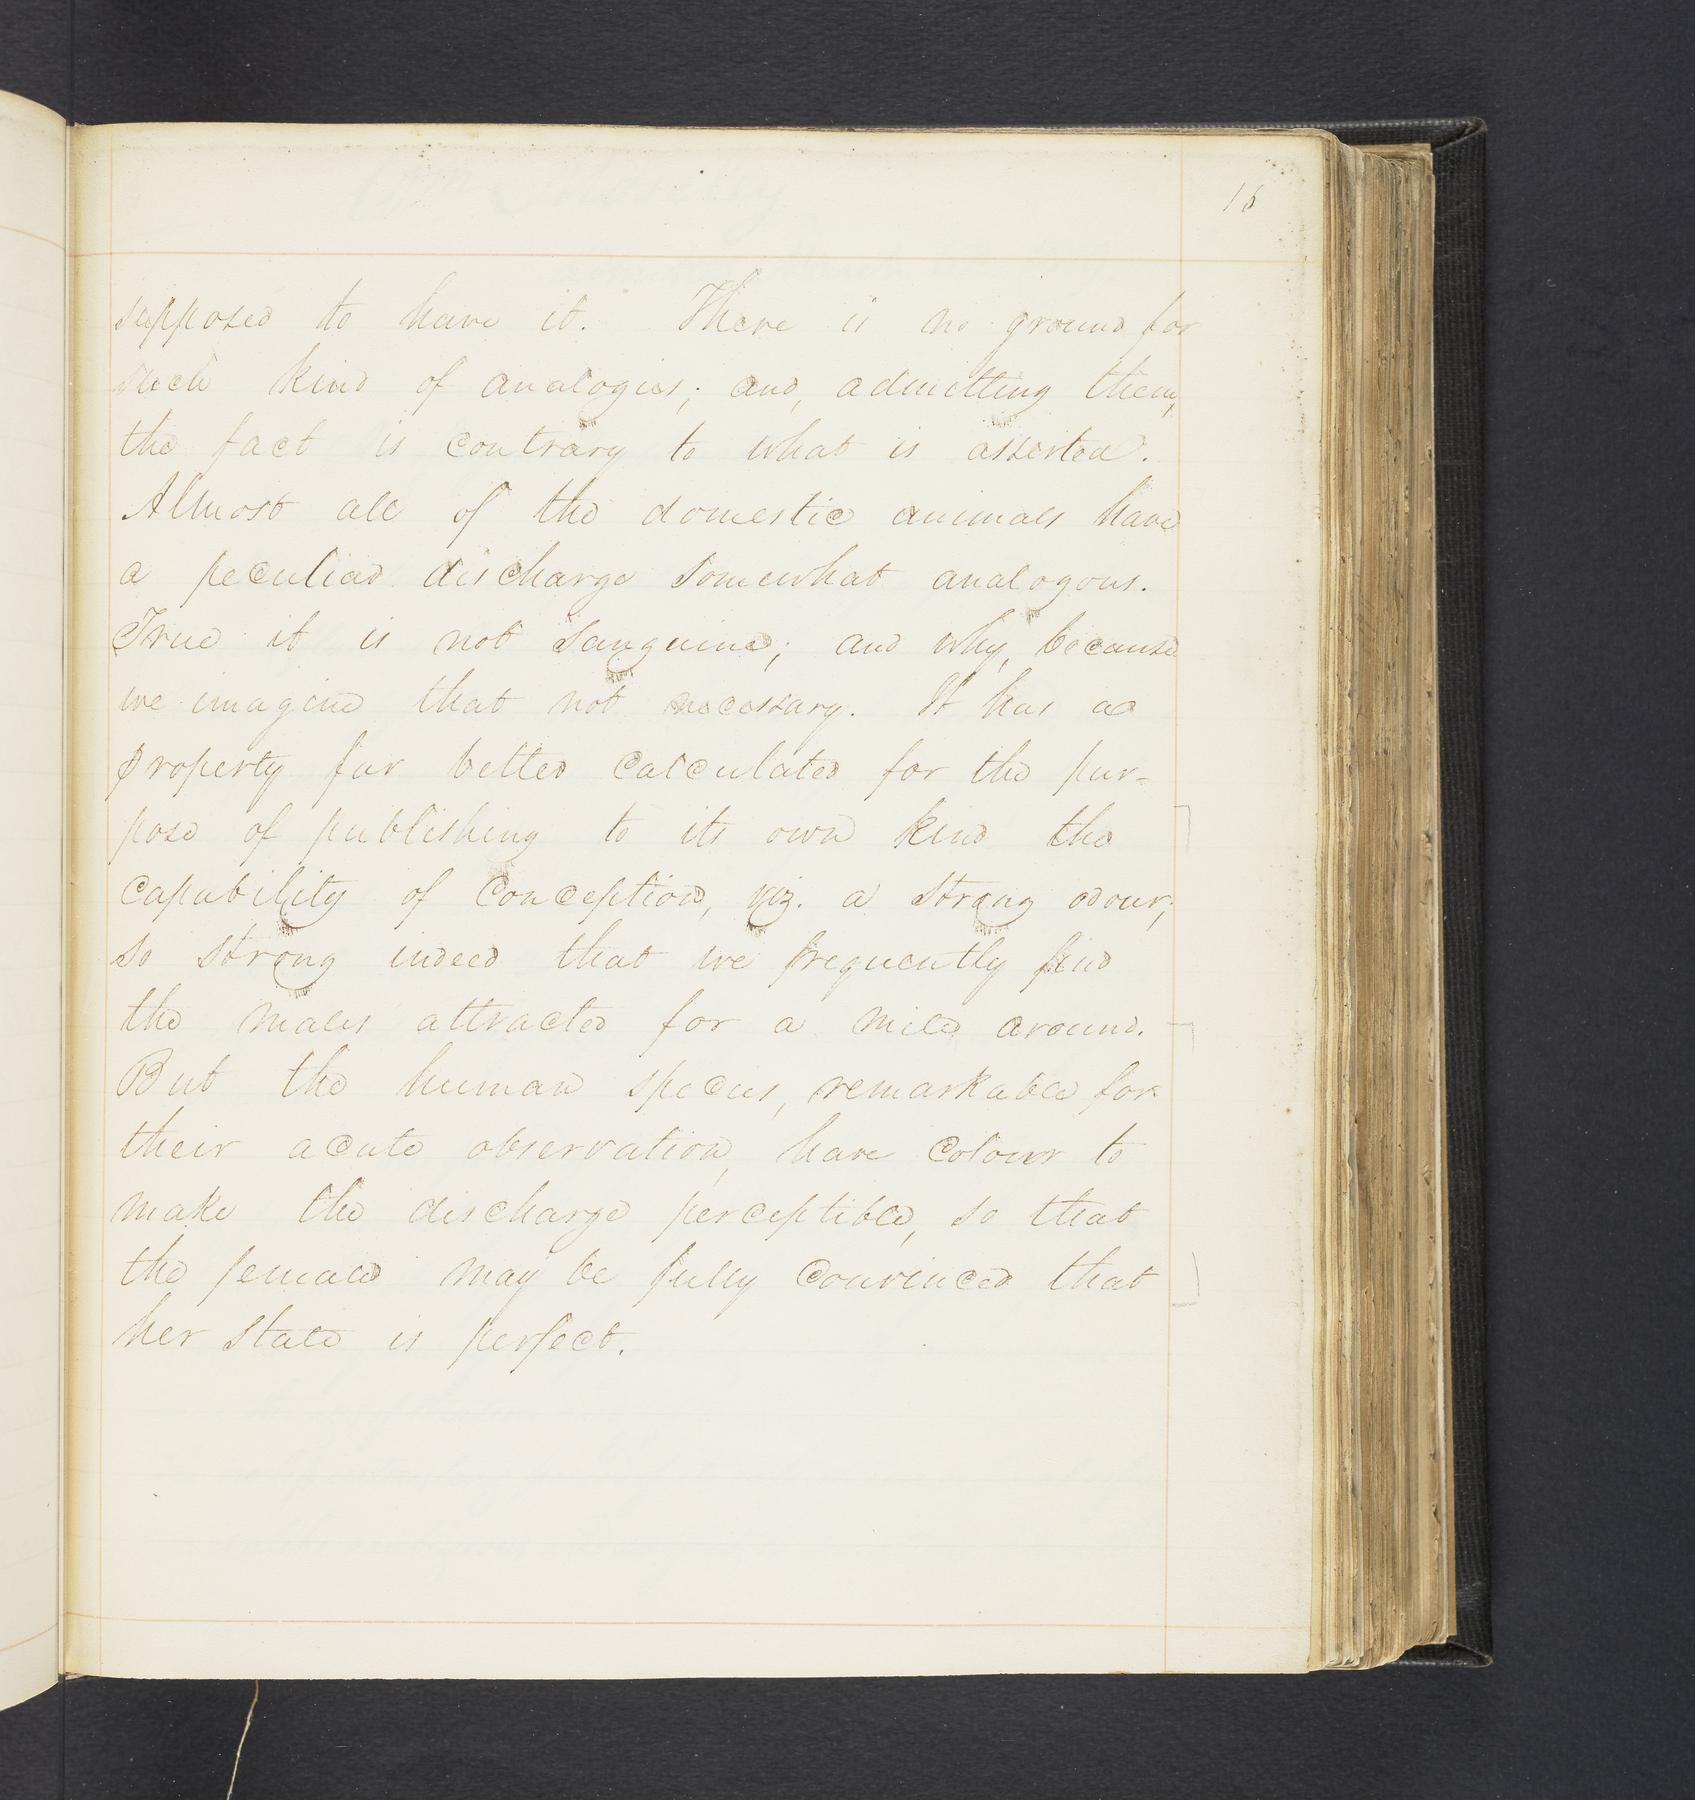 16
supposed to have it. There is no ground for
such kind of analogies; and, admitting them,
the fact is contrary to what is asserted.
Almost all of the domestic animals have
a peculiar discharge somewhat analogous.
True it is not sanguine; and why, because
we imagine that not necessary. It has a
property far better calculated for the pur-
pose of publishing to its own kind the
capability of conception, viz. a strong odour;
so strong indeed that we frequently find
the males attracted for a mile around.
But the human species, remarkable for
their acute observation, have colour to
make the discharge perceptible, so that
the female may be fully convinced that
her state is perfect.